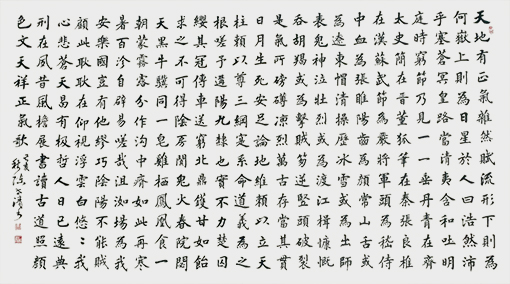 天地有正氣雜然賦流形下則為
河嶽上則為日星於人曰浩然沛
乎塞蒼冥皇路當清夷含和吐明
庭時窮節乃見一一垂丹青在齊
太史簡在晉董狐筆在秦張良椎
在漢蘇武節為嚴將軍頭為嵇侍
中血為張睢陽齒為顏常山舌或
為遼東帽清操厲冰雪或為出師
表鬼神泣壯烈或為渡江楫慷慨
吞胡羯或為擊賊笏逆豎頭破裂
是氣所磅礴凜烈萬古存當其貫
日月生死安足論地維賴以立天
柱賴以尊三綱實系命道義為之
根嗟予遘陽九隸也實不力楚囚
纓其冠傳車送窮北鼎鑊甘如飴
求之不可得陰房闃鬼火春院閟
天黑牛驥同一皂雞栖鳳凰食一
朝蒙霧露分作溝中瘠如此再寒
暑百沴自辟易嗟哉沮洳場為我
安樂國豈有他繆巧陰陽不能賊
顧此耿耿在仰視浮雲白悠悠我
心悲蒼天曷有極哲人日已遠典
刑在夙昔風檐展書讀古道照顏
色文天祥正氣歌